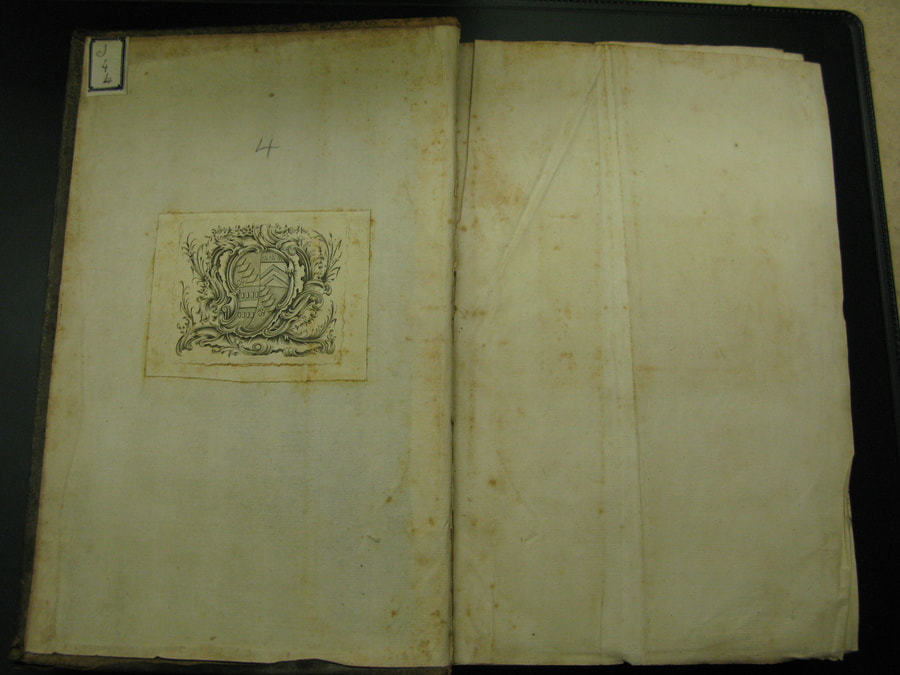 J
4
4
4